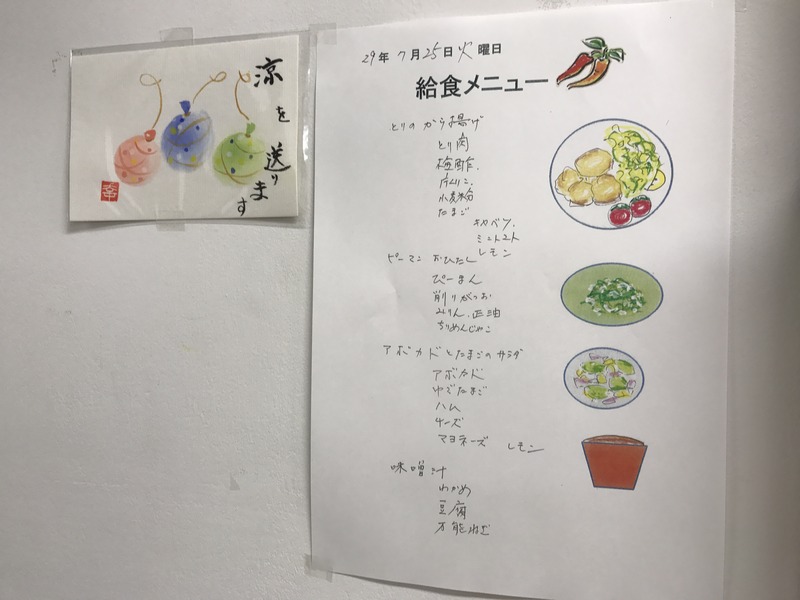 涼
を
送り
ます
幸
29年 7月25日火曜日
給食メニュー
とりのから揚げ
とり肉
梅酢.
片くりこ.
小麦粉
たまご
キャベツ.
ミニトマト
レモン
ピーマン おひたし
ぴーまん
削りがつお
みりん、正油
ちりめんじゃこ
アボカドとたまごのサラダ
アボカド
ゆでたまご
ハム
チーズ
マヨネーズ レモン
味噌汁
わかめ
豆腐
万能ねぎ